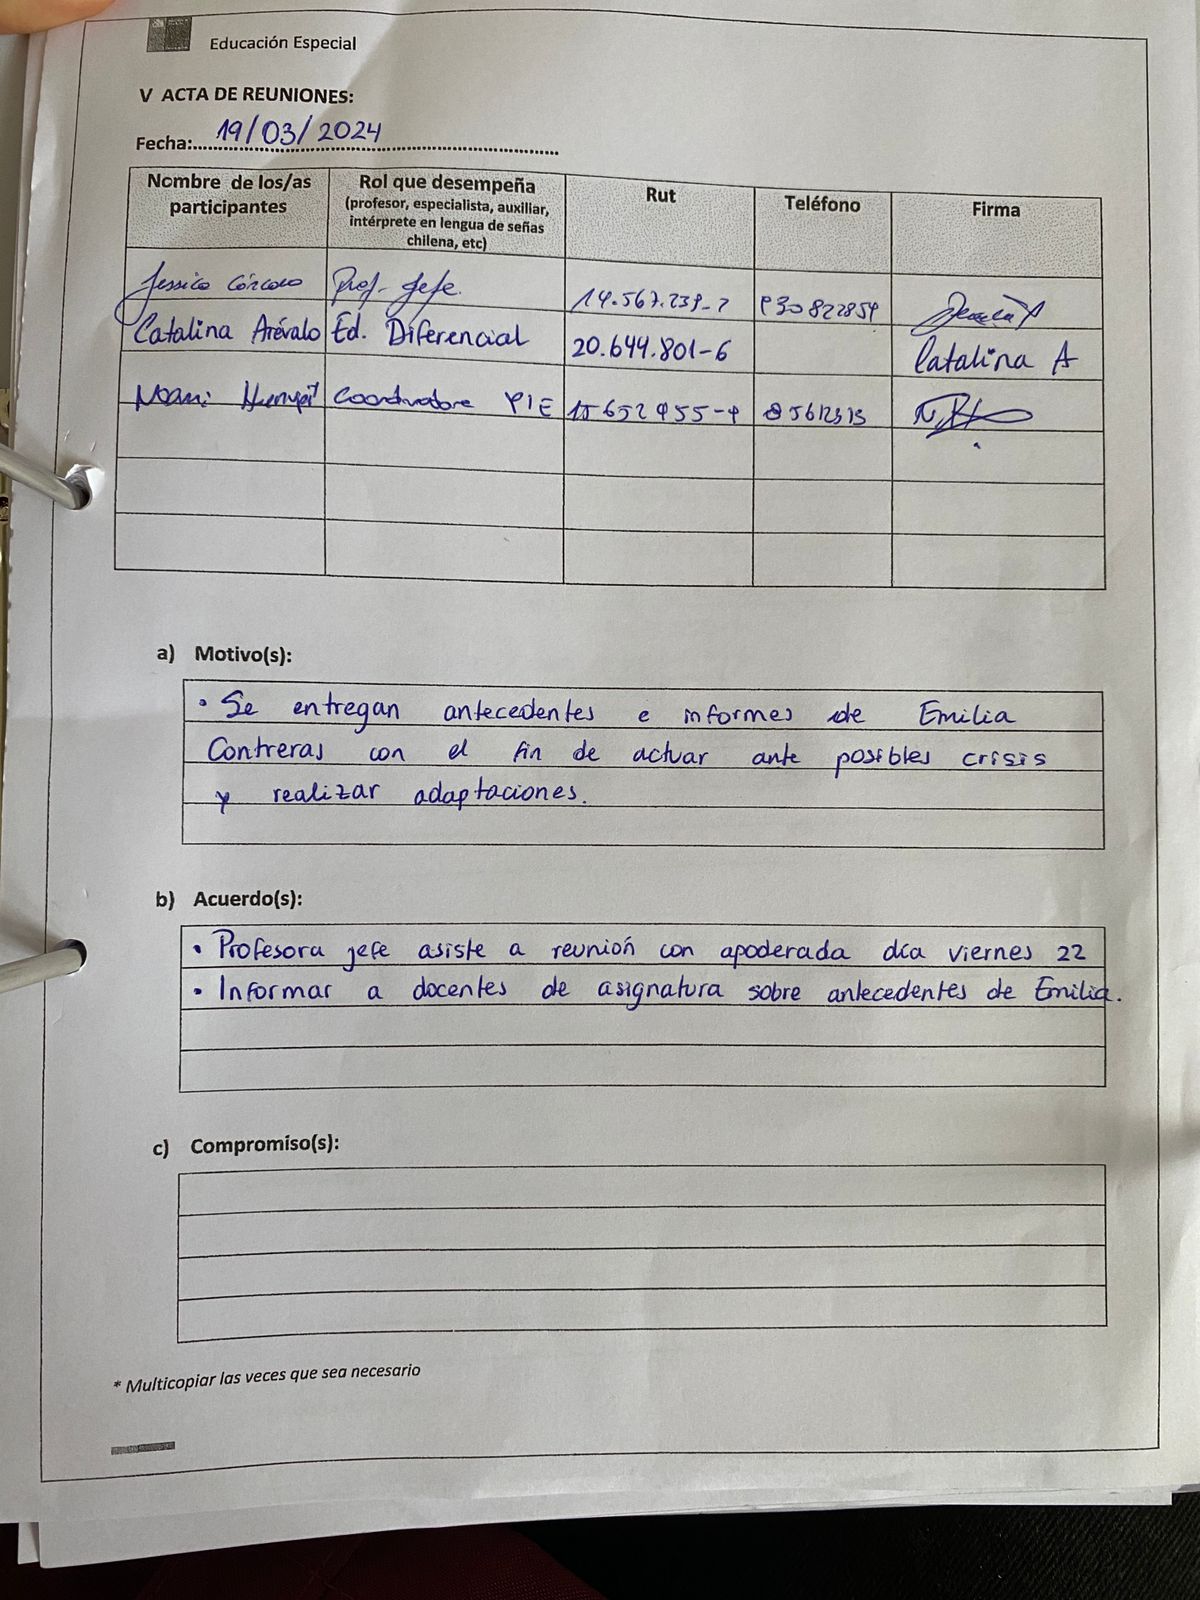 Educación Especial
V ACTA DE REUNIONES:
Fecha: 19/03/2024
Nombre de los/as participantes
Rol que desempeña
(profesor, especialista, auxiliar, intérprete en lengua de señas chilena, etc)
Rut
Teléfono
Firma
Jessica Prof. Jefe.
Catalina Arévalo Ed. Diferencial 20.644.801-6 Catalina A
Coordinadora PIE
a) Motivo(s):
• Se entregan antecedentes e informes de Emilia
Contreras con el fin de actuar ante posibles crisis
y realizar adaptaciones.
b) Acuerdo(s):
• Profesora jefe asiste a reunión con apoderada día viernes 22
• Informar a docentes de asignatura sobre antecedentes de Emilia.
c) Compromiso(s):
* Multicopiar las veces que sea necesario